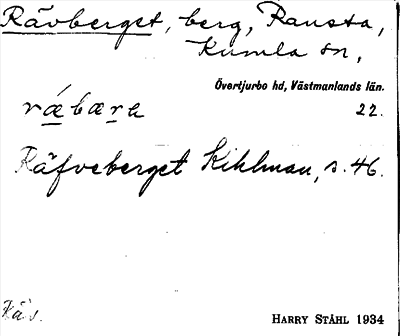 Rävberget, berg, Ransta,
Kumla sn,
Övertjurbo hd, Västmanlands län.
rǽbæra 22.
Räfveberget Kihlman, s. 46.
HARRY STÅHL 1934